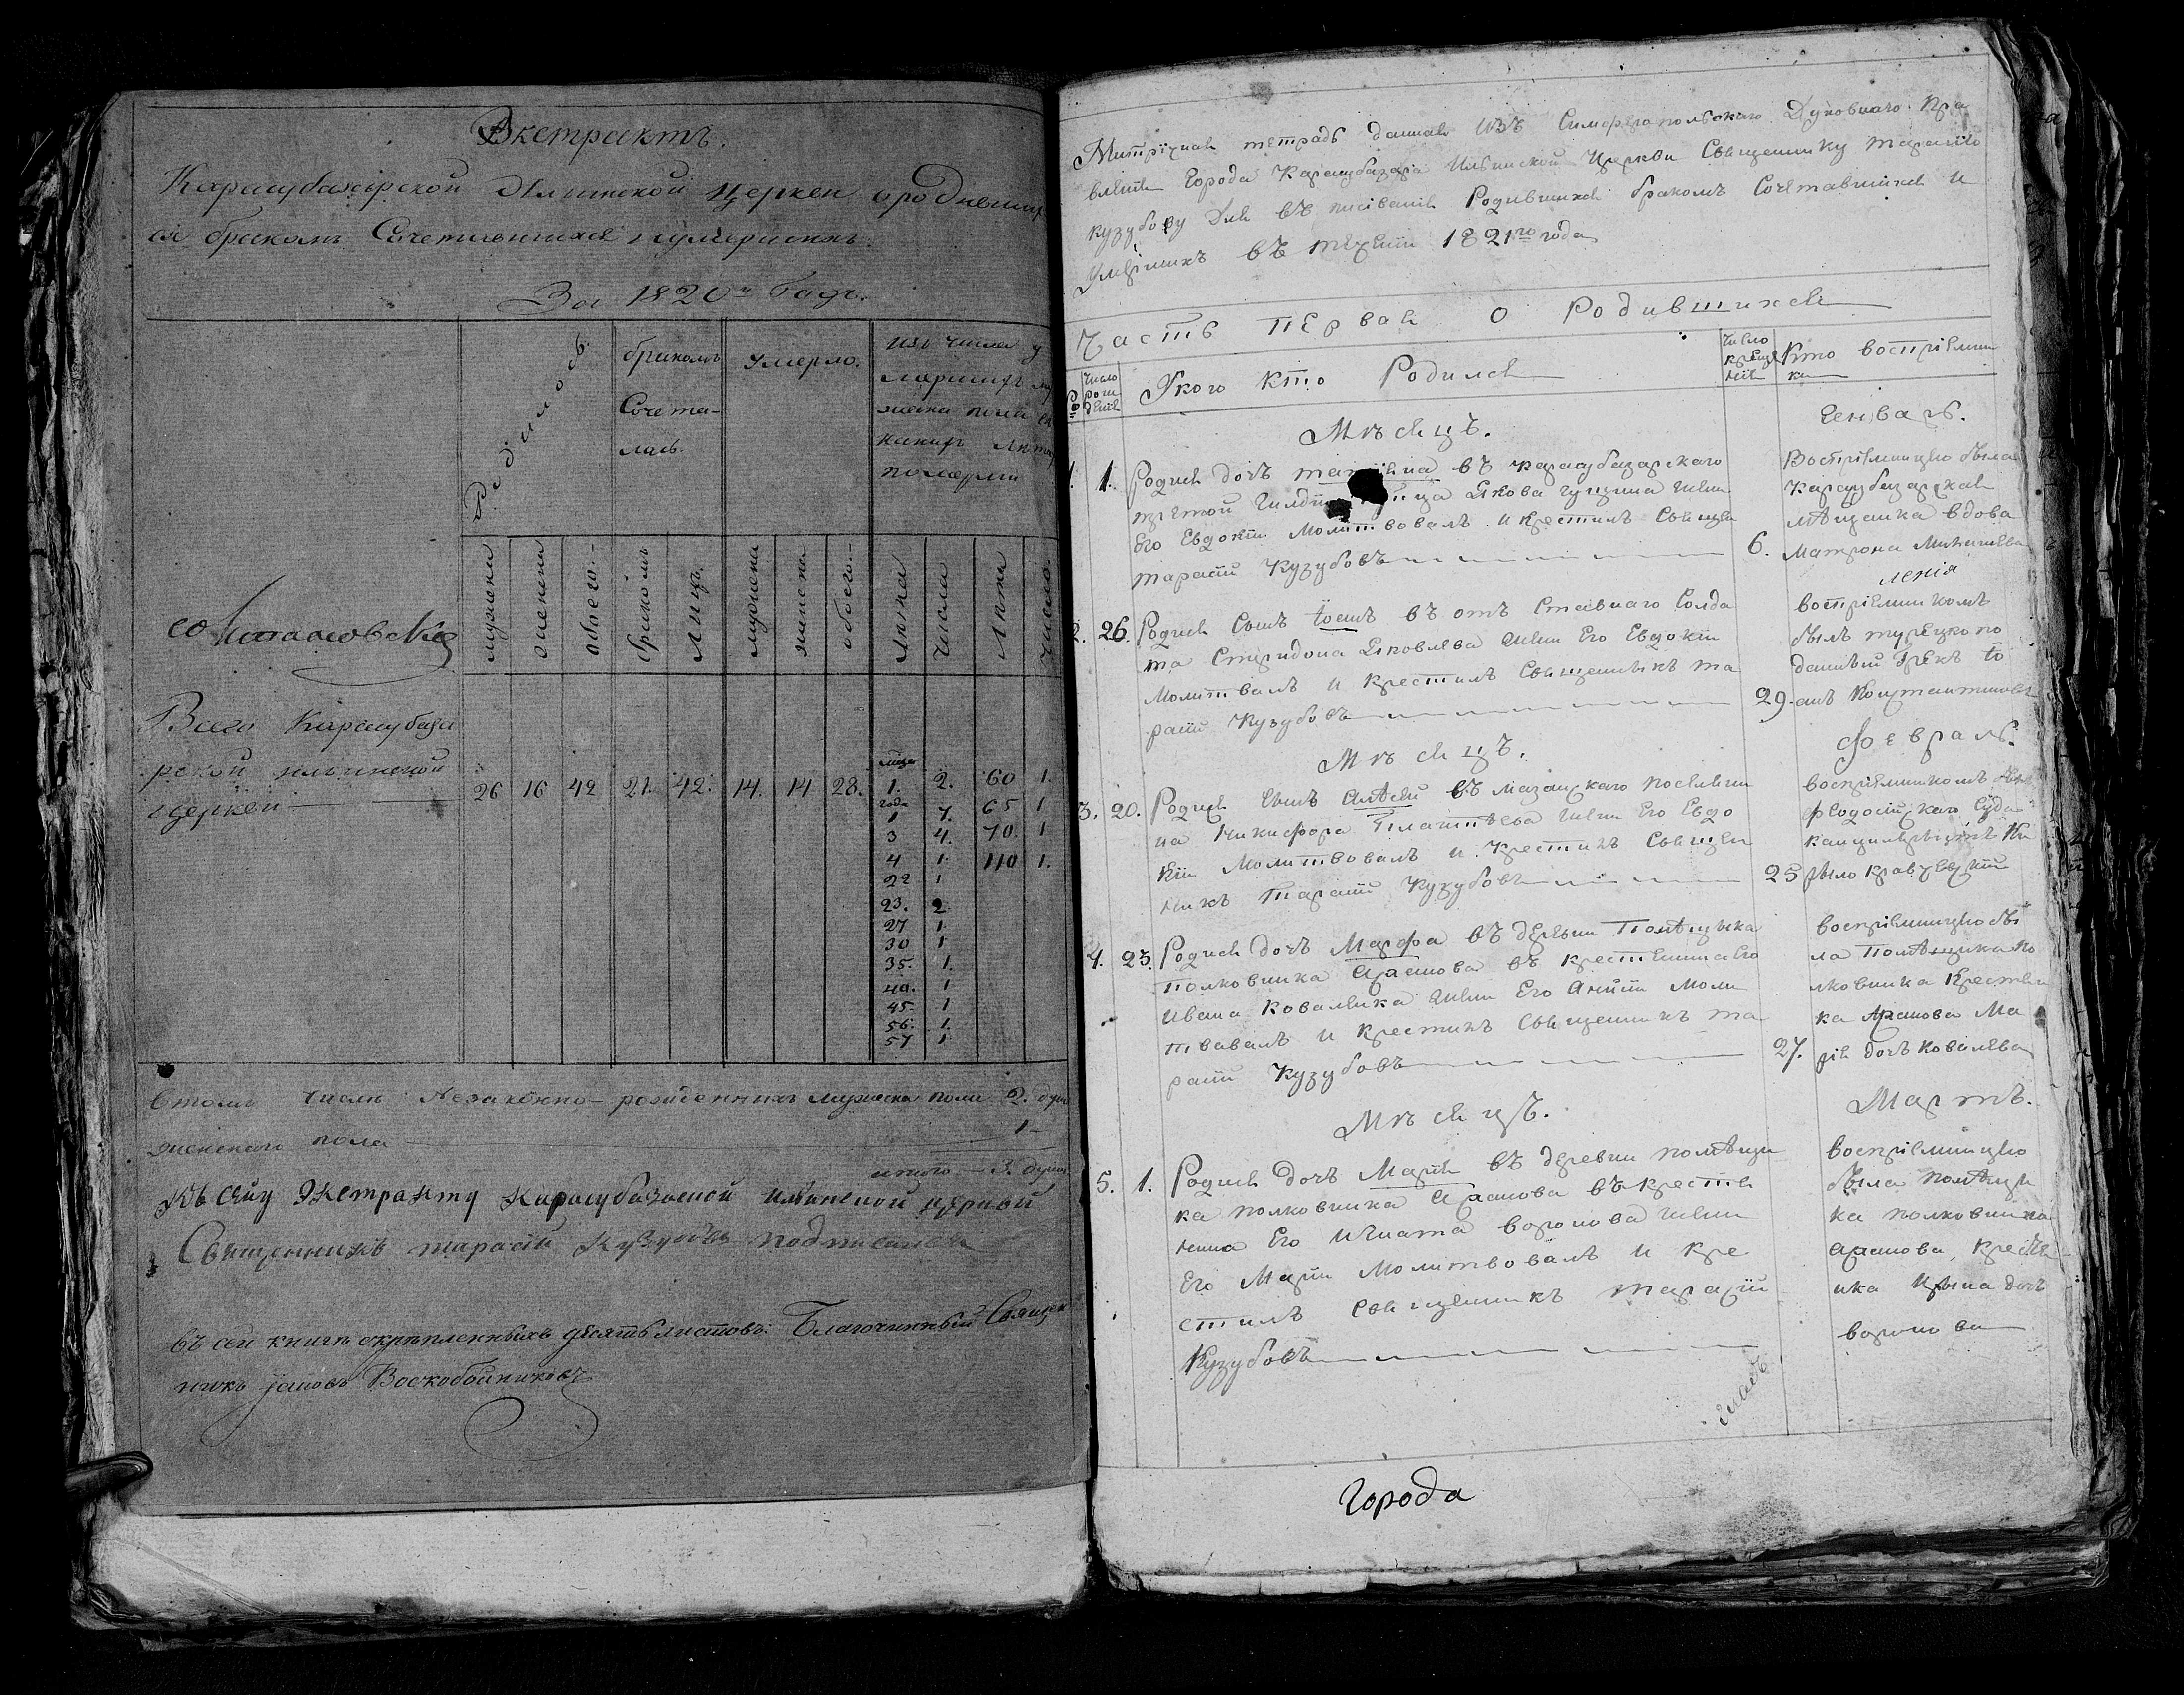 Экстрактъ.
Карасубазарской Ильинской церкви о родивших
ся бракомъ Сочетавшихся и умершихъ
За 1820й Годъ.
Родилось
бракомъ
Сочета-
лась
Умерло.
изъ числа у
мершихъ му
жеска пола въ
какихъ лѣтахъ
померли
мужеска
женска
обоего.
бракомъ
Лицъ.
мужеска
женска
обоего.
Лѣта
Число
Лѣта
Число
Всего Карасубаза
рской ильинской
церкви
26 16 42 21. 42. 14. 14 28. 1. 2. 60 1.
года
1 7. 65 1
3 4. 70. 1
4 1. 110 1.
22 1
23. 2
27 1
30 1
35. 1.
40. 1
45 1
56. 1.
57 1
Втомъ числѣ Незаконно-рожденныхъ мужеска пола 2. души
женскаго пола 1-
итого 3. души
Къ сему Экстракту Карасубазаской илинской церкви
Священникъ тарасий Кузубовъ подписался
въ сей книгѣ скрѣпленныхъ десять листовъ: Благочинный Священ
никъ Іаковъ Воскобойниковъ
тетрадь данная изъ Симферопольскаго Духовнаго Пра
вления Города Карасубазара Ильинской Церкви Священнику тарасию
кузубову Для въ писивания Родившихся бракомъ Сочетавшихся и
Умершихъ въ течении 1821го года
Часть первая о Родившихся
Число
рож
дения
Укого кто Родился
Число
креще
ния
Кто восприемни
ки
Мѣсяцъ.
Генварь.
1. 1. Родися дочь въ карасубазарскаго
третой Гилдии Якова жены
Его Евдокии Молитвовалъ и Крестилъ Священ
тарасии Кузубовъ
6.
Восприемницею была
карасубазарская
мѣщанка вдова
Матрона
2. 26. Родися Сынъ Іоанъ въ отъ Ставнаго Солда
та Спиридона Яковлева жены Его Евдокии
Молитвалъ и Крестилъ Священникъ та
расии Кузубовъ
29.
восприемникомъ
былъ турецкопо
данный Грекъ Іо
анъ Константиновъ
Мѣсяцъ.
Февраль.
3. 20. Родися Сынъ Алѣксий въ мазанскаго поселяни
на Никифора жены Его Евдо
кии Молитвовалъ и крестилъ Священ
никъ Тарасии Кузубовъ
25
восприемникомъ былъ
феодосийскаго Суда
4. 23. Родися дочь Марфа въ деревни Помѣщика
Полковника въ крестянина Его
Ивана Ковалѣва жены Его Анны Моли
твовалъ и Крестилъ Священникъ та
расии Кузубовъ
27.
восприемницею бы
ла Помѣщика По
лковника Крестян
ка Ма
рия дочь Ковалѣва
Мѣсяцъ.
Мартъ.
5. 1. Родися Дочь Мария въ деревни помѣщи
ка полковника въ крестя
нина Его Игната воронова жены
Его Марии Молитвовалъ и Кре
стилъ Священникъ тарасии
Кузубовъ
восприемницею
была помѣщи
ка полковника
крестян
ка Ирина дочь
воронова
Города